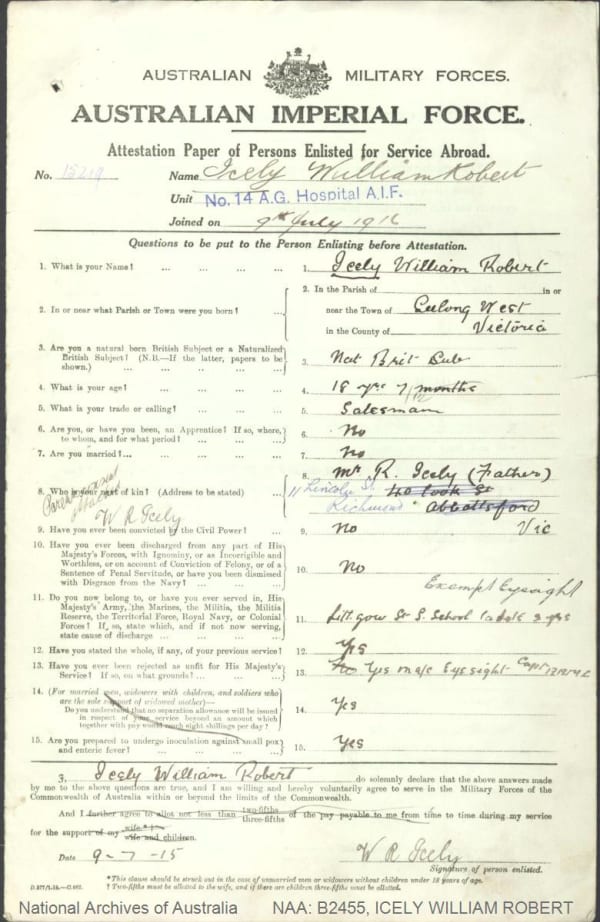 AUSTRALIAN MILITARY FORCES.
AUSTRALIAN IMPERIAL FORCE.
Attestation Paper of Persons Enlisted for Service Abroad.
No. 15219 Name Icely William Robert
Unit No. 14 A.G. Hospital A.I.F.
Joined on 9th July 191
Questions to be put to the Person Enlisting before Attestation.
1. What is your Name? ... ... ... ... 1. Icely William Robert
2. In or near what Parish or Town were you born? ... 2. In the Parish of in or
near the Town of Geelong West
in the County of Victoria
3. Are you a natural born British Subject or a Naturalized British Subject? (N.B.—If the latter, papers to be shown.) ... ... ... ... 3. Nat Brit Sub
4. What is your age? ... ... ... ... 4. 18 yrs 7/12 months
5. What is your trade or calling? ... ... ... 5. Salesman
6. Are you, or have you been, an Apprentice? If so, where, to whom, and for what period? ... ... ... 6. No
7. Are you married?... ... ... ... 7. No
8. Who is your next of kin? (Address to be stated) ... 8. Mr R. Icely (Father)
Parents consent attached
W R Icely
11 Lincoln St 40 Cook St
Richmond Abbottsford
Vic
9. Have you ever been convicted by the Civil Power? ... 9. No
10. Have you ever been discharged from any part of His Majesty's Forces, with Ignominy, or as Incorrigible and Worthless, or on account of Conviction of Felony, or of a Sentence of Penal Servitude, or have you been dismissed with Disgrace from the Navy? ... ... ... 10. No
Exempt Eyesight
11. Do you now belong to, or have you ever served in, His Majesty's Army, the Marines, the Militia, the Militia Reserve, the Territorial Force, Royal Navy, or Colonial Forces? If so, state which, and if not now serving, state cause of discharge ... ... ... 11. Litt gow St S. School Cadets 3 yrs
12. Have you stated the whole, if any, of your previous service? 12. Yes
13. Have you ever been rejected as unfit for His Majesty's Service? If so, on what grounds? ... ... 13. No Yes Eyesight Capt
14. (For married men, widowers with children, and soldiers who are the sole support of widowed mother)—
Do you understand that no separation allowance will be issued in respect of your service beyond an amount which together with pay would reach eight shillings per day? 14. Yes
15. Are you prepared to undergo inoculation against small pox and enteric fever? ... ... ... ... 15. Yes
I, Icely William Robert do solemnly declare that the above answers made
by me to the above questions are true, and I am willing and hereby voluntarily agree to serve in the Military Forces of the
Commonwealth of Australia within or beyond the limits of the Commonwealth.
And I further agree to allot not less than two-fifths three-fifths of the pay payable to me from time to time during my service
for the support of my wife*† wife and children.
Date 9-7-15 W R Icely
Signature of person enlisted.
*This clause should be struck out in the case of unmarried men or widowers without children under 18 years of age.
† Two-fifths must be allotted to the wife, and if there are children three-fifths must be allotted.
National Archives of Australia NAA: B2455, ICELY WILLIAM ROBERT